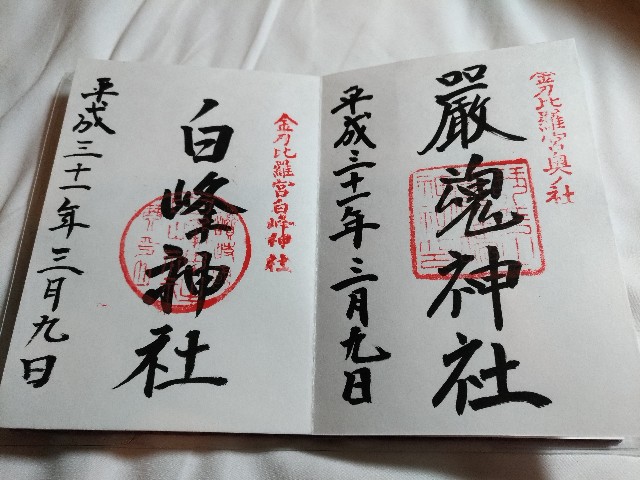 金刀比羅宮奥ノ社
嚴魂神社
平成三十一年三月九日
金刀比羅宮白峰神社
白峰神社
平成三十一年三月九日